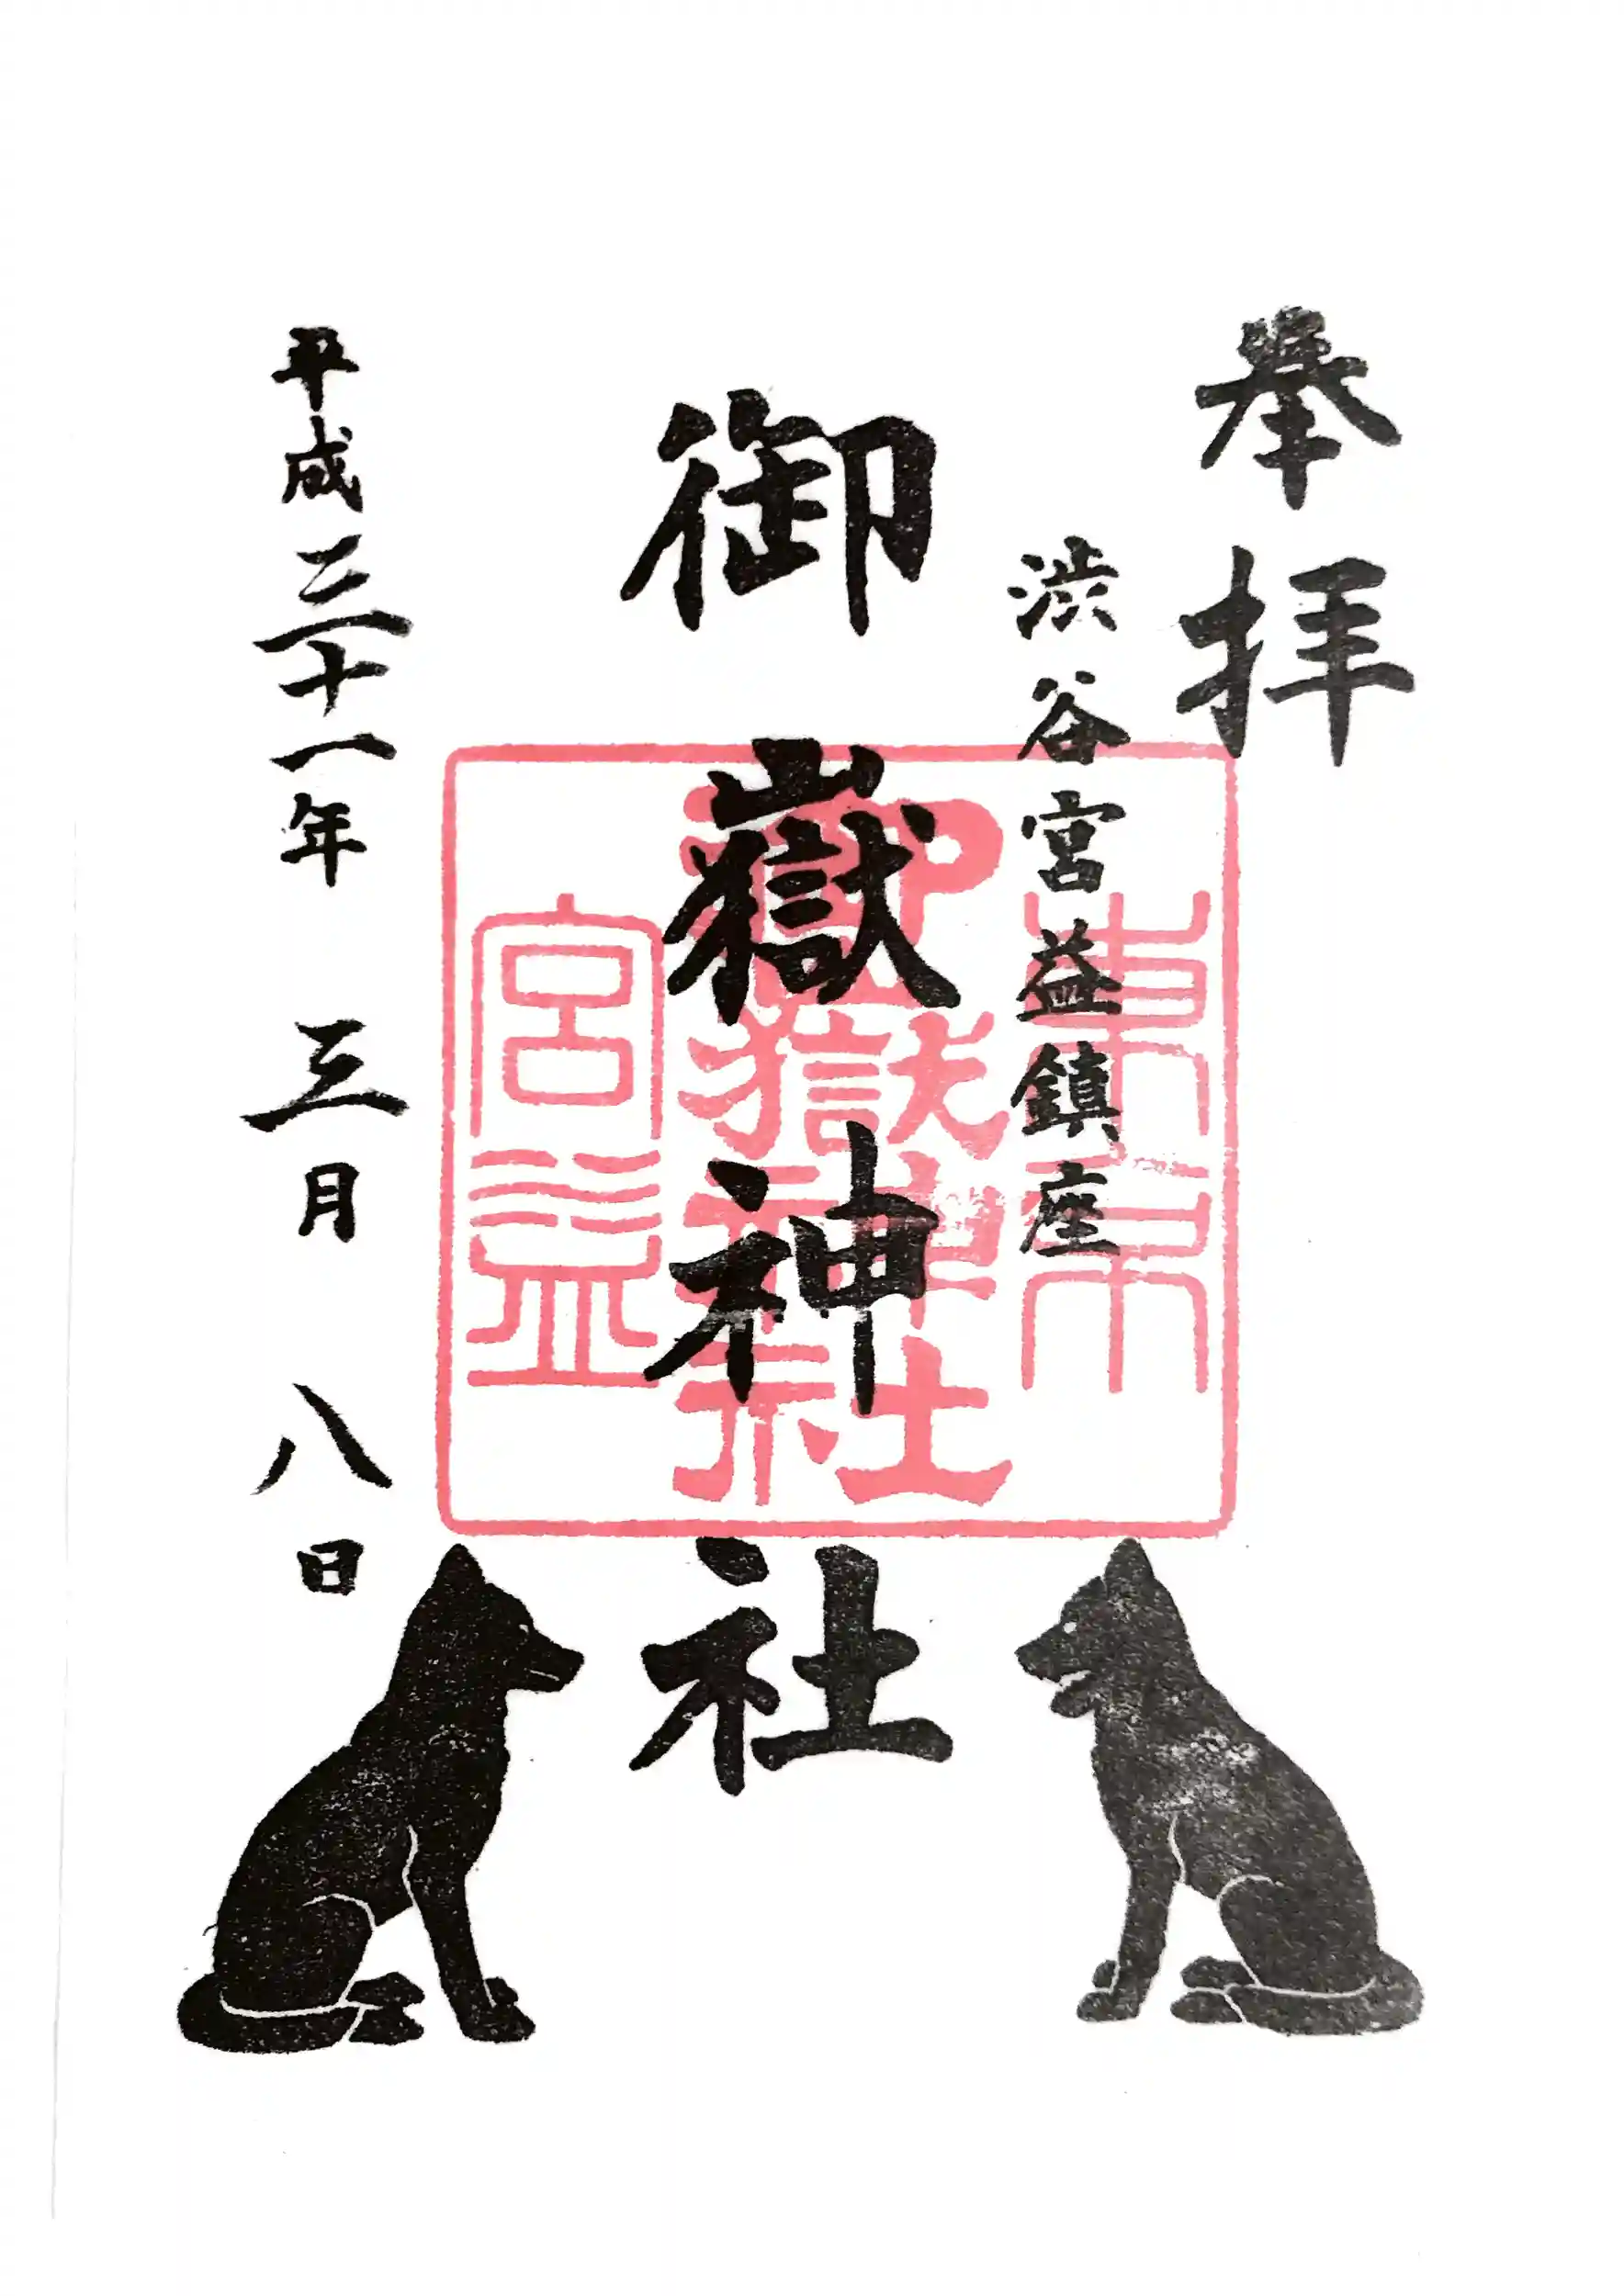 奉拝
渋谷宮益鎮座
御嶽神社
平成三十一年 三月 八日
東京
御嶽神社
宮益